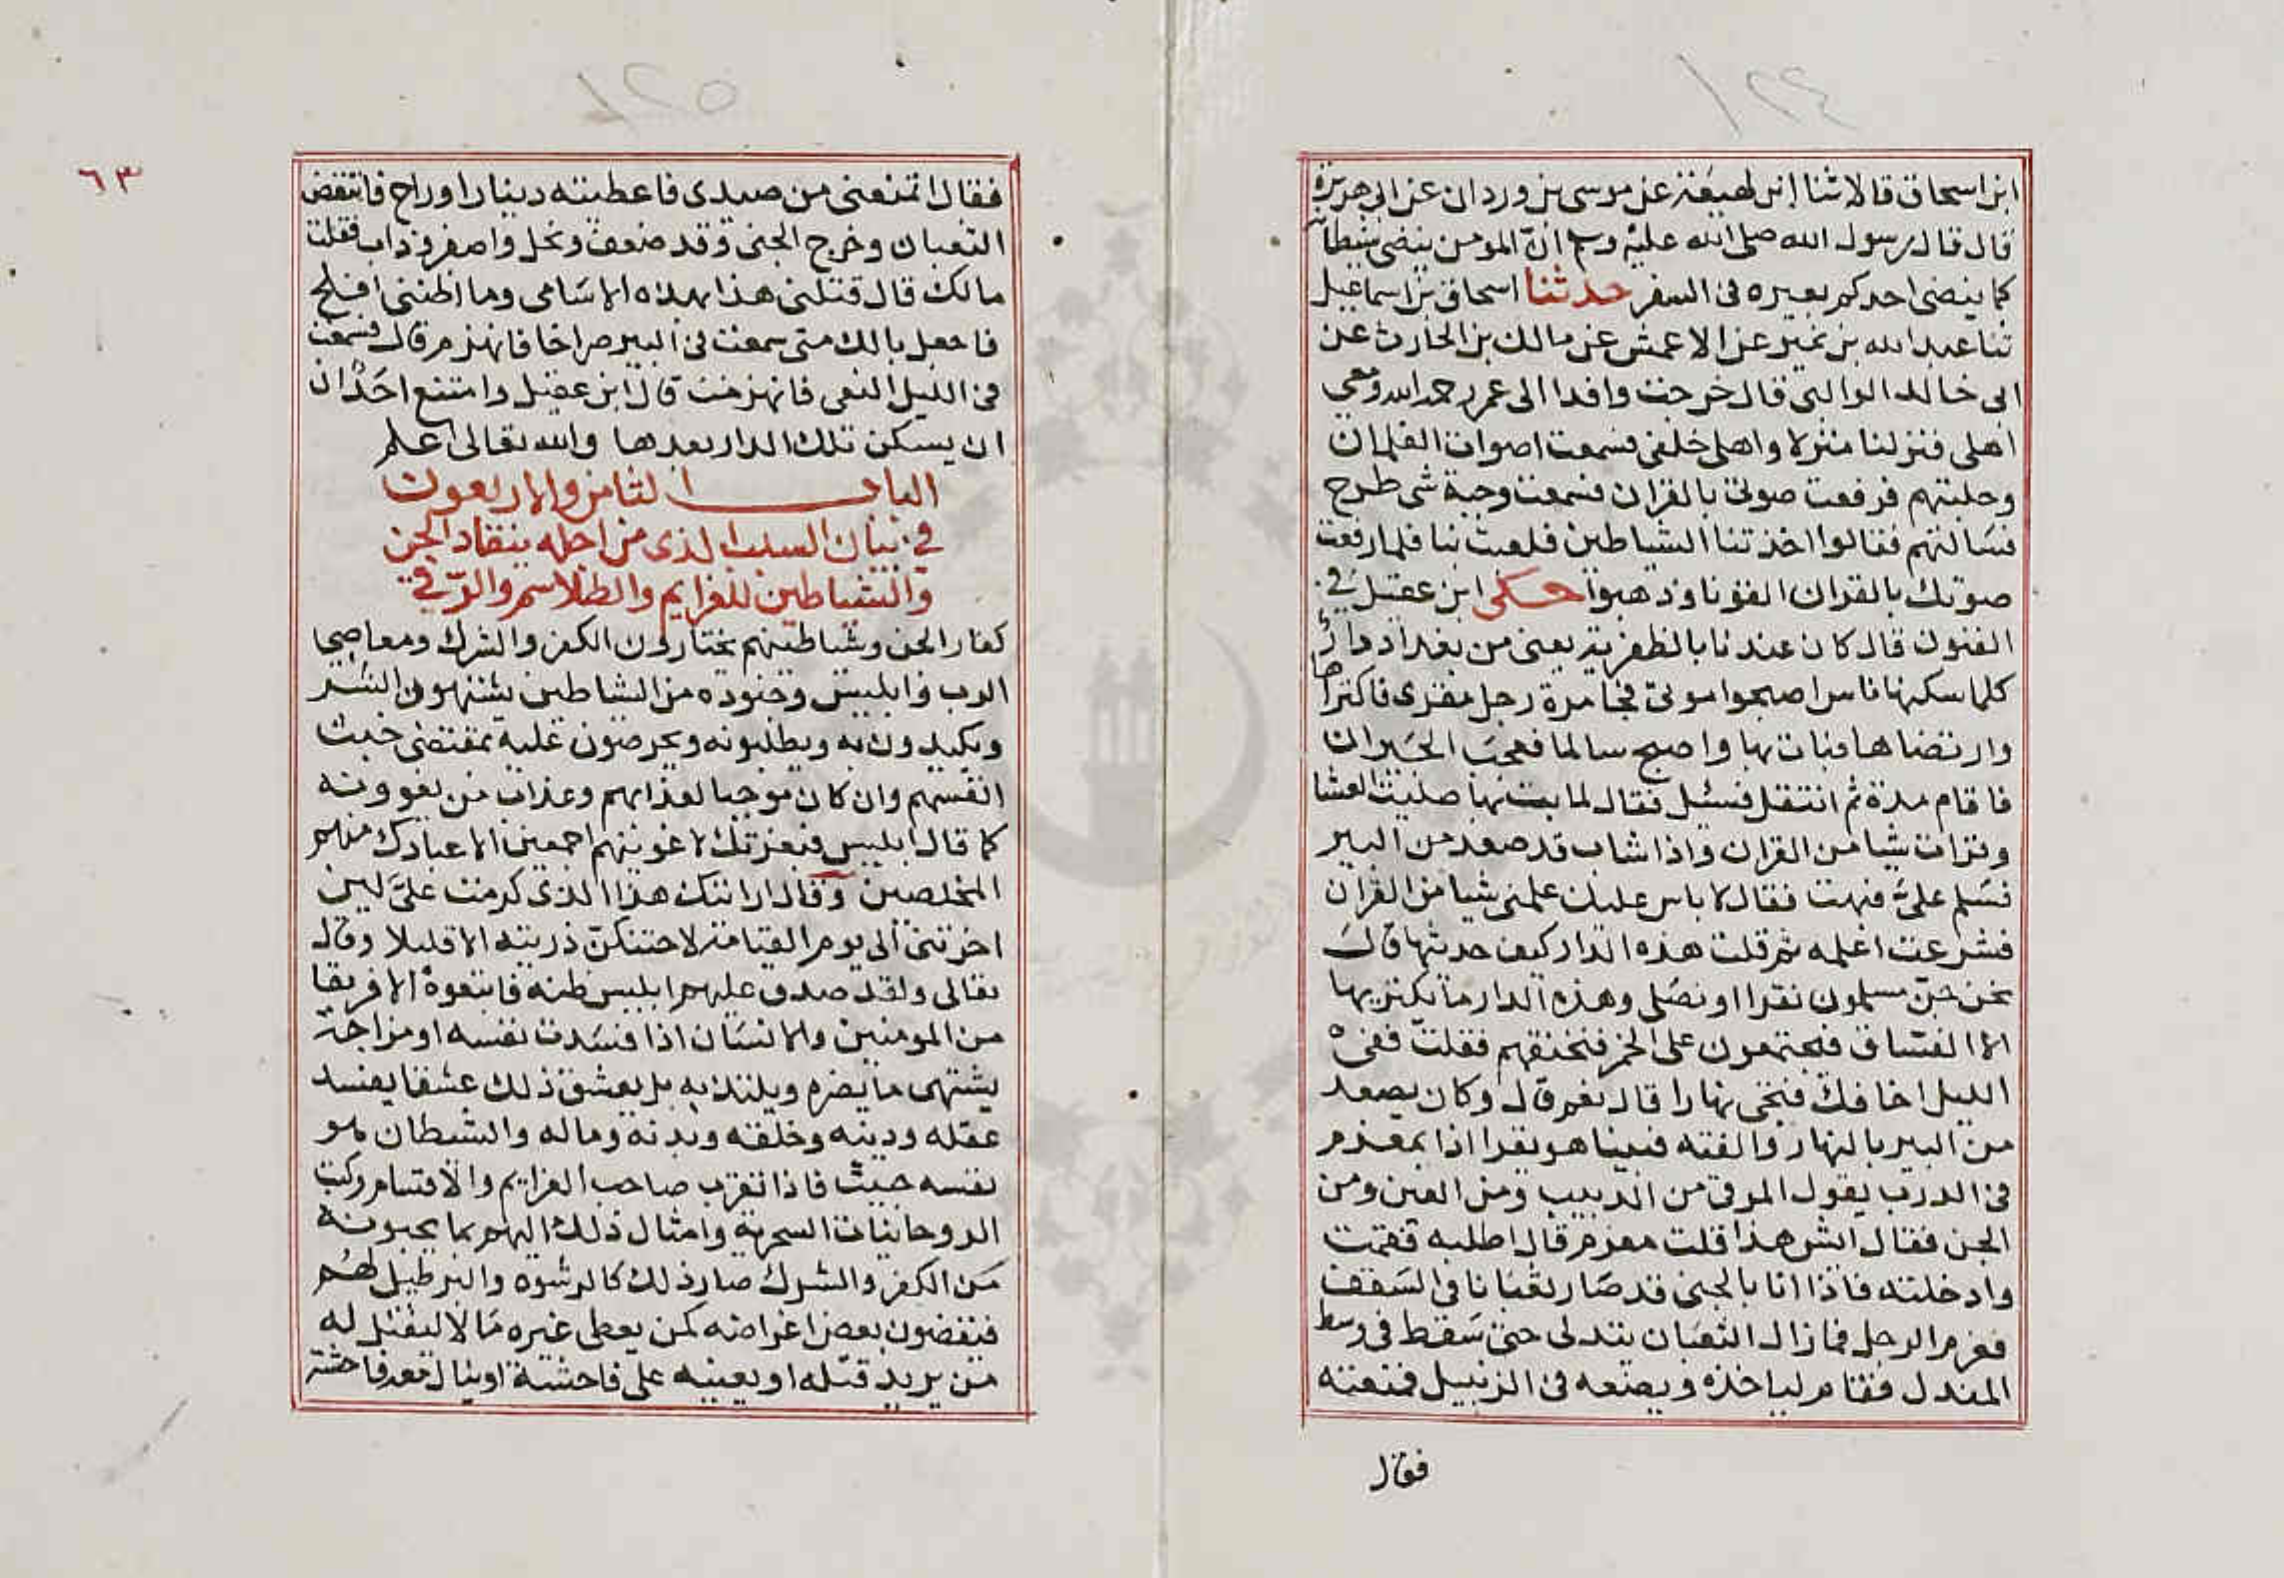 ابن اسحاق قالا ثنا ابن لهيعة عن موسى بن وردان عن ابى هريرة
قال قال رسول الله صلى الله عليه وسلم انّ المومن ينضى شيطانه
كما ينضى احدكم بعيره فى السفر حدثنا اسحاق بن اسماعيل
ثنا عبد الله بن نمير عن الاعمش عن مالك بن الحارث عن
ابى خالد الوالبى قال خرجت وافدا الى عمر رحمه الله ومعى
اهلى فنزلنا منزلا واهلى خلفى فسمعت اصوات الغلمان
وجلبتهم فرفعت صوتى بالقران فسمعت وجبة شى طرح
فسالتهم فقالوا اخذتنا الشياطين فلعبت بنا فلما رفعت
صوتك بالقران القونا وذهبوا حكى ابن عقيل فى
الفنون قال كان عندنا بالظفرية يعنى من بغداد دار
كلما سكنها ناس اصبحوا موتى فجا مرة رجل مقرى فاكتراها
وارتضاها فبات بها واصبح سالما فعجب الجيران
فاقام مدة ثم انتقل فسئل فقال لما بت بها صليت العشا
وقرات شيا من القران واذا شاب قد صعد من البير
فسلم علىّ فبهت فقال لا باس عليك علمنى شيا من القران
فشرعت اعلمه ثم قلت هذه الدار كيف حديثها قال
نحن جنّ مسلمون نقرا ونصلى وهذه الدار ما يكتريها
الا الفساق فيجتمعون على الخمر فنخنقهم فقلت ففى
الليل اخافك فتجى نهارا قال نعم قال وكان يصعد
من البير بالنهار والفته فبينا هو يقرا اذا بمعزم
فى الدرب يقول المرقى من الدبيب ومن العين ومن
الجن فقال ايش هذا قلت معزم قال اطلبه فقمت
وادخلته فاذا انا بالجنى قد صار ثعبانا فى السقف
فعزم الرجل فما زال الثعبان يتدلى حتى سقط فى وسط
المندل فقام لياخذه ويضعه فى الزنبيل فمنعته
فقال
٦٣
فقال اتمنعنى من صيدى فاعطيته دينارا وراح فانتفض
الثعبان وخرج الجنى وقد ضعف ونحل واصفر وذاب فقلت
مالك قال قتلنى هذا بهذه الاسامى وما اظننى افلح
فاجعل بالك متى سمعت فى البير صراخا فانهزم قال فسمعت
فى الليل النعى فانهزمت قال ابن عقيل وامتنع احد ان
ان يسكن تلك الدار بعدها والله تعالى اعلم
الباب الثامن والاربعون
فى بيان السبب الذى من اجله ينقاد الجن
والشياطين للعزايم والطلاسم والرّقى
كفار الجن وشياطينهم يختارون الكفر والشرك ومعاصى
الرب وابليس وجنوده من الشاطين يشتهون الشر
ويكيدون به ويطلبونه ويحرصون عليه بمقتضى خبث
انفسهم وان كان موجبا لعذابهم وعذاب من يغوونه
كما قال ابليس فبعزتك لاغوينهم اجمعين الا عبادك منهم
المخلصين وقال ارايتك هذا الذى كرمت علىّ لين
اخرتنى الى يوم القيامة لاحتنكنّ ذريته الا قليلا وقال
تعالى ولقد صدق عليهم ابليس ظنه فاتبعوه الا فريقا
من المومنين والانسان اذا فسدت نفسه او مزاجه
يشتهى ما يضره ويلتذ به بل يعشق ذلك عشقا يفسد
عقله ودينه وخلقه وبدنه وماله والشيطان هو
نفسه خبيث فاذا تقرب صاحب العزايم والاقسام وكتب
الروحانيات السحرية وامثال ذلك اليهم بما يحبونه
من الكفر والشرك صار ذلك كالرشوة والبرطيل لهم
فيقضون بعض اغراضه كمن يعطى غيره مالا ليقتل له
من يريد قتله او يعينه على فاحشة او ينال معه فاحشة